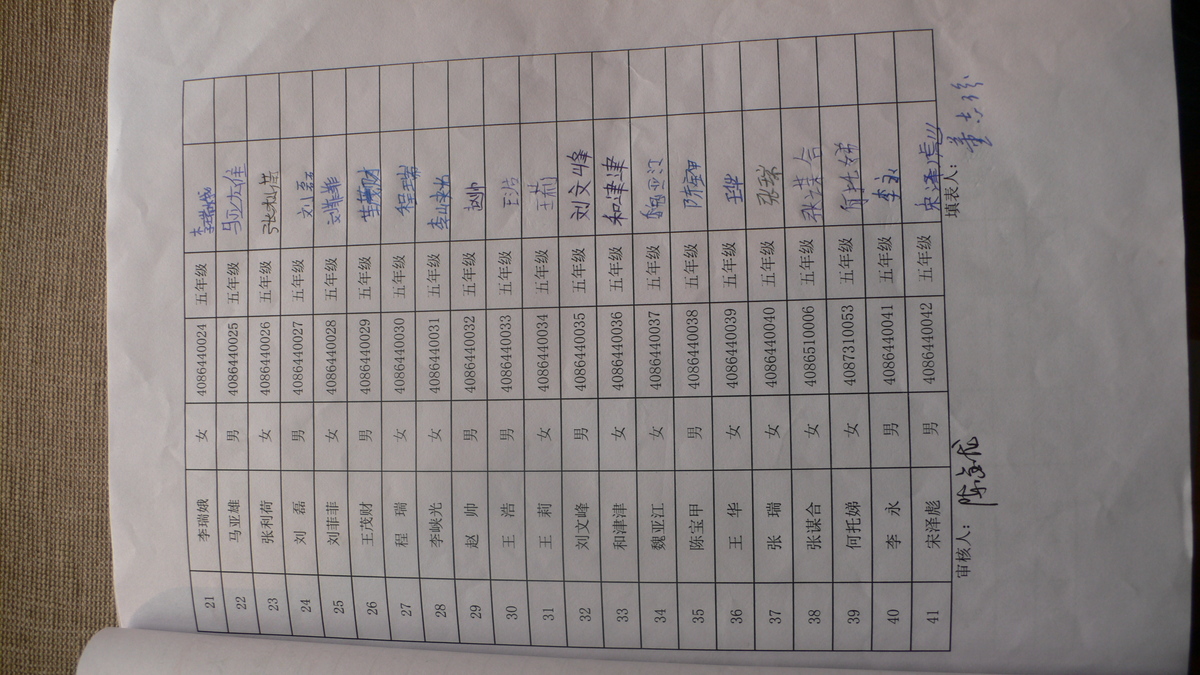 21 李瑞娥 女 4086440024 五年级 李瑞娥
22 马亚雄 男 4086440025 五年级 马亚雄
23 张利荷 女 4086440026 五年级 张利荷
24 刘磊 男 4086440027 五年级 刘磊
25 刘菲菲 女 4086440028 五年级 刘菲菲
26 王茂财 男 4086440029 五年级
27 程瑞 女 4086440030 五年级 程瑞
28 李峡光 女 4086440031 五年级 李峡光
29 赵帅 男 4086440032 五年级 赵帅
30 王浩 男 4086440033 五年级 王浩
31 王莉 女 4086440034 五年级 王莉
32 刘文峰 男 4086440035 五年级 刘文峰
33 和津津 女 4086440036 五年级 和津津
34 魏亚江 女 4086440037 五年级 魏亚江
35 陈宝甲 男 4086440038 五年级 陈宝甲
36 王华 女 4086440039 五年级 王华
37 张瑞 女 4086440040 五年级 张瑞
38 张谋合 女 4086510006 五年级 张谋合
39 何托娣 女 4087310053 五年级 何托娣
40 李永 男 4086440041 五年级 李永
41 宋泽彪 男 4086440042 五年级 宋泽彪
审核人： 填表人：